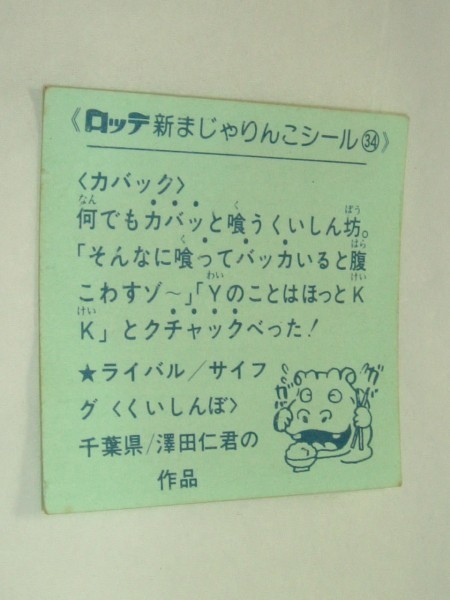 《ロッテ新まじゃりんこシール㉞》
〈カバック〉
何でもカバッと喰うくいしん坊。
「そんなに喰ってバッカいると腹
こわすゾ〜」「Yのことはほっと K
K」とクチャックべった!
★ライバル/サイフ
グ〈くいしんぼ〉
千葉県/澤田仁君の
作品
ガ ガ